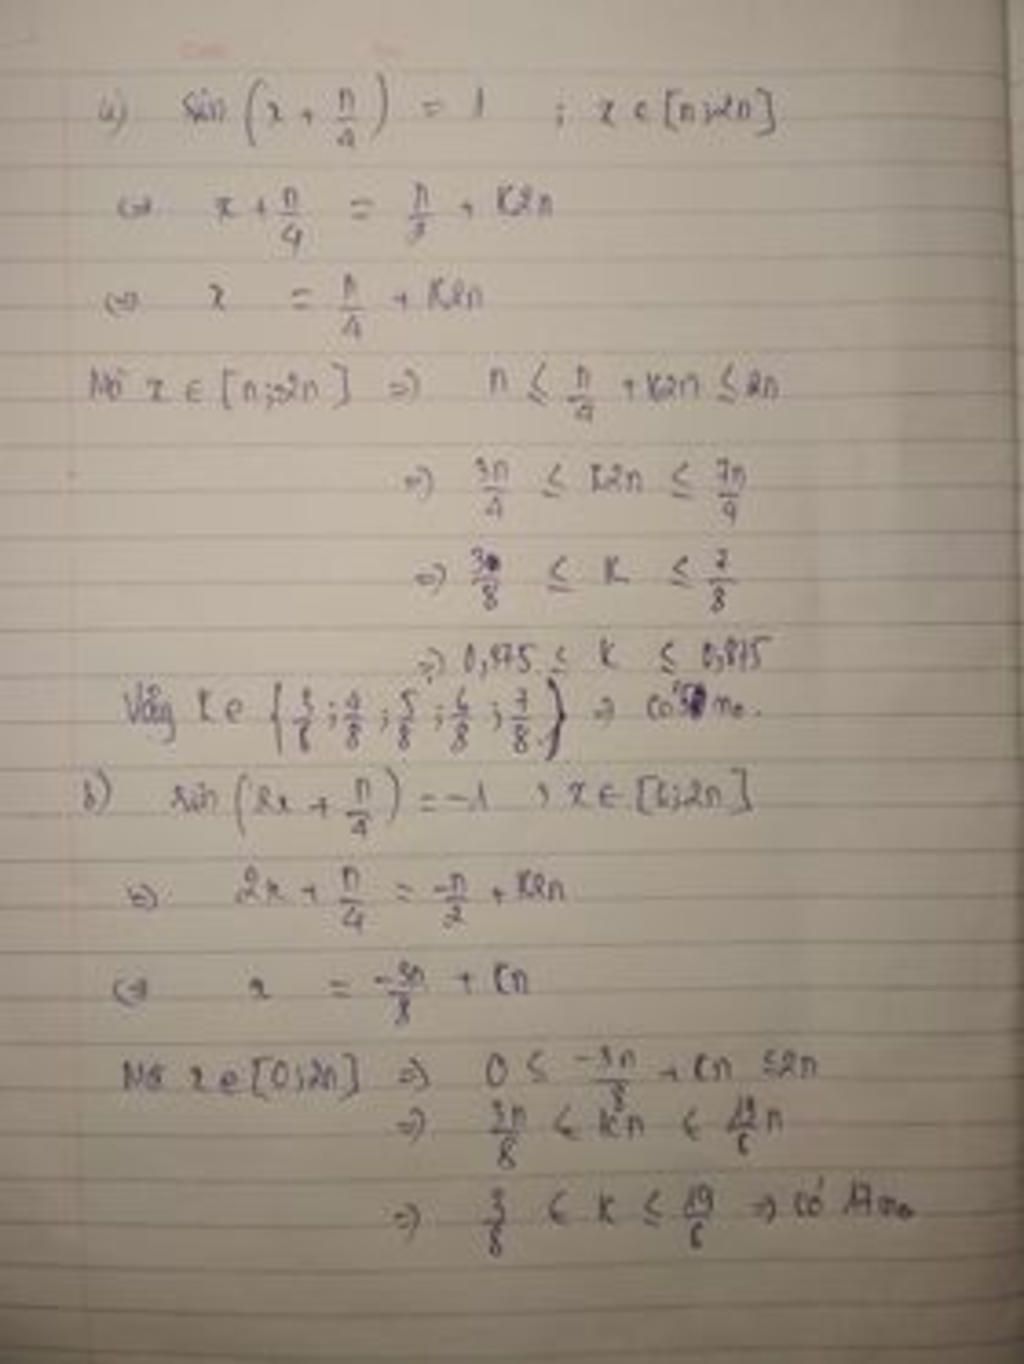 a) sin (x + π/4) = 1 ; x ∈ [π; 2π]
⇔ x + π/4 = π/2 + K2π
⇔ x = π/4 + K2π
Mà x ∈ [π; 2π] ⇒ π ≤ π/4 + K2π ≤ 2π
⇒ 3π/4 ≤ K2π ≤ 7π/4
⇒ 3/8 ≤ K ≤ 7/8
⇒ 0,375 ≤ K ≤ 0,875
Vậy K ∈ {3/8; 4/8; 5/8; 6/8; 7/8} ⇒ có 5 no.
b) sin (2x + π/4) = -1 ; x ∈ [0; 2π]
⇔ 2x + π/4 = -π/2 + K2π
⇔ x = -3π/8 + Kπ
Mà x ∈ [0; 2π] ⇒ 0 ≤ -3π/8 + Kπ ≤ 2π
⇒ 3π/8 ≤ Kπ ≤ 19/8 π
⇒ 3/8 ≤ K ≤ 19/8 ⇒ có 17 no